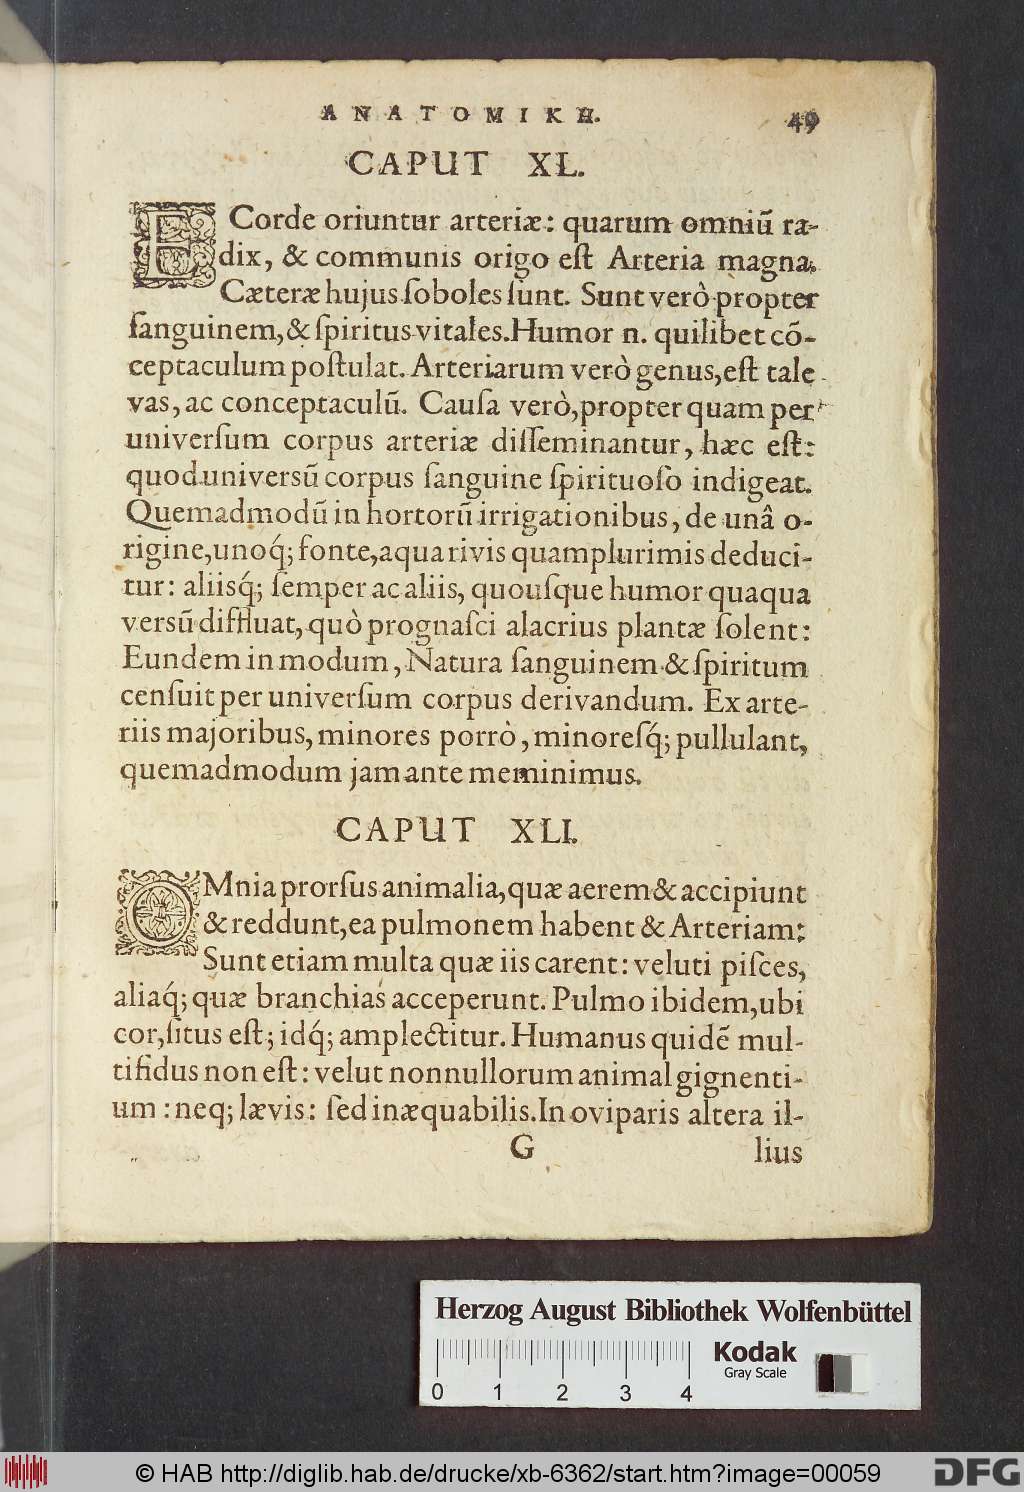 ANATOMIKH. 49
CAPUT XL.
E Corde oriuntur arteriæ: quarum omniũ ra-
dix, & communis origo eſt Arteria magna.
Cæteræ hujus ſoboles ſunt. Sunt verò propter
ſanguinem, & ſpiritus vitales. Humor n. quilibet cõ-
ceptaculum poſtulat. Arteriarum verò genus, eſt tale
vas, ac conceptaculũ. Cauſa verò, propter quam per
univerſum corpus arteriæ diſſeminantur, hæc eſt:
quod universũ corpus ſanguine ſpirituoſo indigeat.
Quemadmodũ in hortorũ irrigationibus, de unâ o-
rigine, unoq́; fonte, aqua rivis quamplurimis deduci-
tur: aliisq́; ſemper ac aliis, quouſque humor quaqua
versũ diffluat, quò prognaſci alacrius plantæ ſolent:
Eundem in modum, Natura ſanguinem & ſpiritum
cenſuit per univerſum corpus derivandum. Ex arte-
riis majoribus, minores porrò, minoreſq́; pullulant,
quemadmodum jam ante meminimus.
CAPUT XLI.
OMnia prorſus animalia, quæ aerem & accipiunt
& reddunt, ea pulmonem habent & Arteriam:
Sunt etiam multa quæ iis carent: veluti piſces,
aliaq́; quæ branchias acceperunt. Pulmo ibidem, ubi
cor, ſitus eſt; idq́; amplectitur. Humanus quidẽ mul-
tifidus non eſt: velut nonnullorum animal gignenti-
um: neq; lævis: ſed inæquabilis. In oviparis altera il-
G lius
Herzog August Bibliothek Wolfenbüttel
0 1 2 3 4
Kodak
Gray Scale
© HAB http://diglib.hab.de/drucke/xb-6362/start.htm?image=00059
DFG